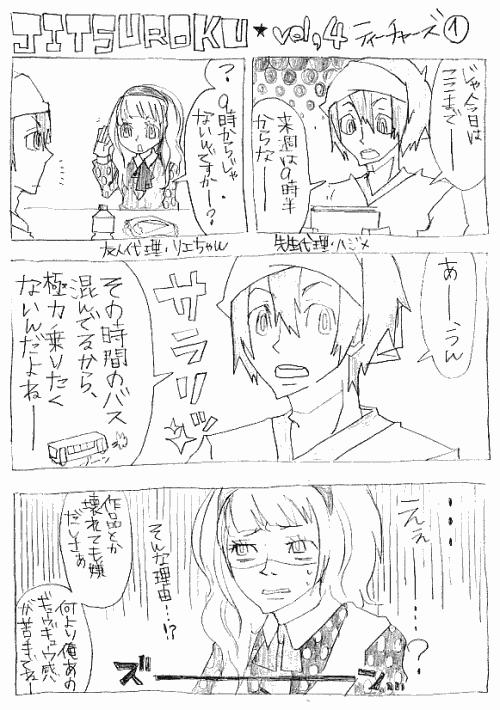 JITSUROKU★vol,4 ティーチャーズ①
じゃ今日は
ココまでー
来週は9時半
からなー
先生代理・ハジメ
?
9時からじゃ
ないんですかー?
友人代理・リエちゃん
あーうん
サラリッ
その時間のバス
混んでるから、
極力乗りたく
ないんだよねー
ブーン
・・・
えぇ
・・・?
そんな理由…!?
作品とか
壊れても嫌
だしさぁ
何より俺あの
ギュウギュウ感
が苦手でぇー
ズーーン